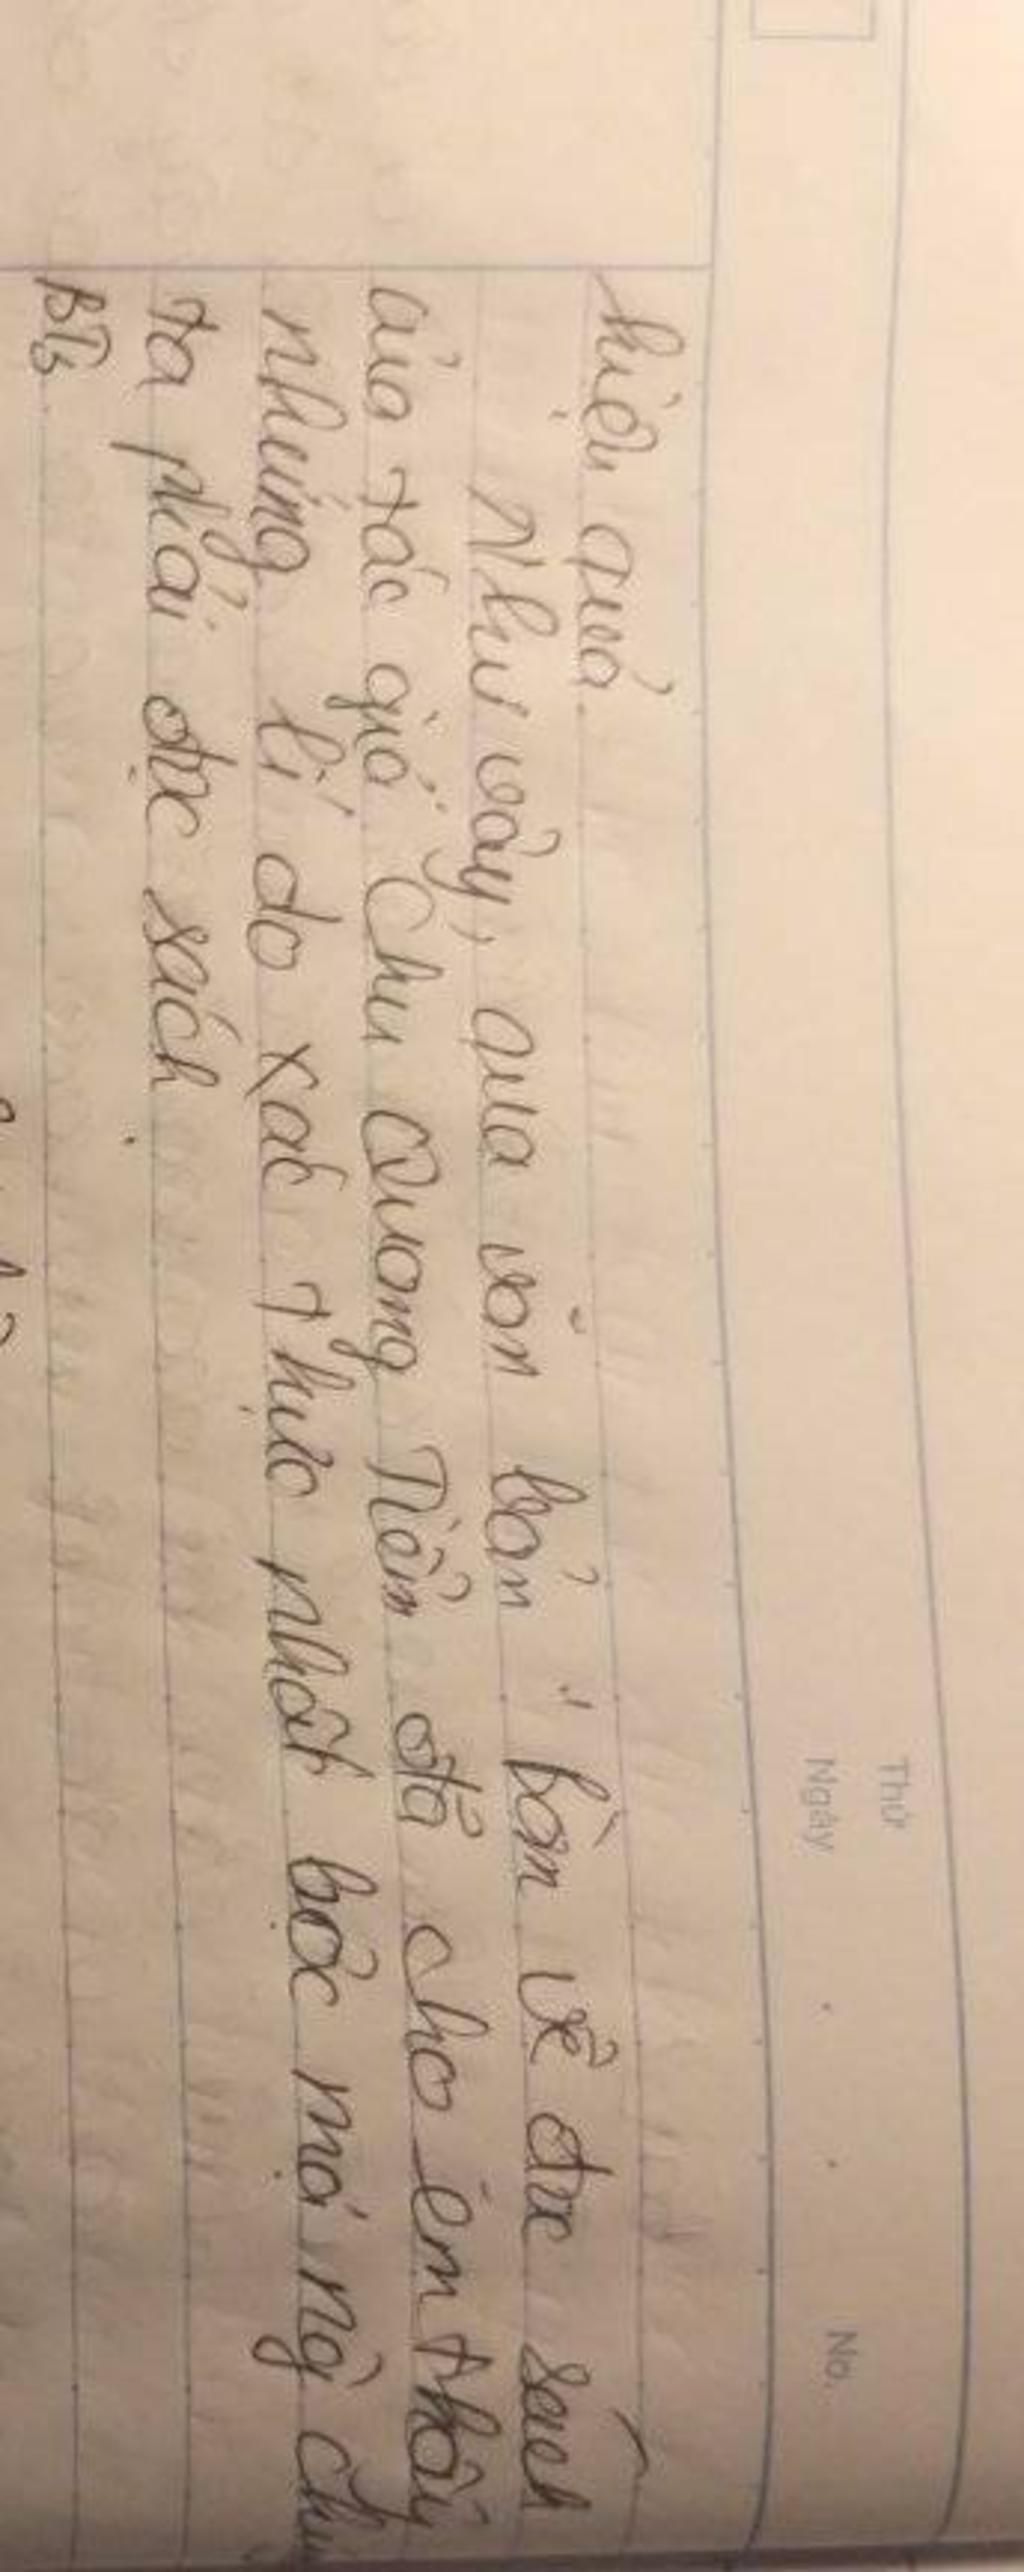 Thứ
Ngày No.
hiệu quả.
Như vậy, qua văn bản "bàn về đọc sách
của tác giả Chu Quang Tiềm đã cho em thấy
những lí do xác thực nhất bọc mọi ng chú
ta phải đọc sách
BT3